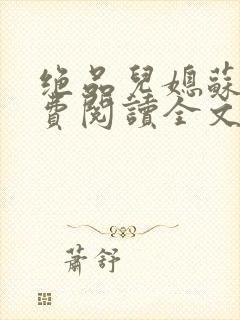 绝品兒媳蘇
費閱讀全文
蕭舒